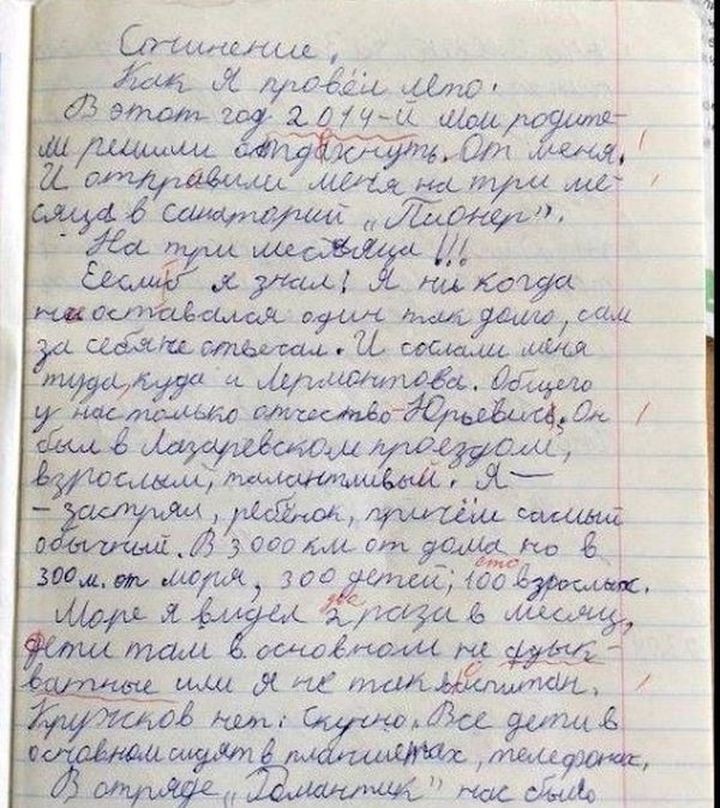 Сочинение.
Как я провёл лето.
В этот год 2014-й мои родите-
ли решили отдохнуть. От меня.
И отправили меня на три ме-
сяца в санаторий „Пионер".
На три месяца!!!
Еесли б я знал! Я ни когда
не оставался один так долго, сам
за себя не отвечал. И сослали меня
туда, куда и Лермонтова. Общего
у нас только отчество - Юрьевич. Он
был в Лазаревском проездом,
взрослым, талантливый. Я —
- застрял, ребёнок, причём самый
обычный. В 3000 км от дома но в
сто
300 м. от моря, 300 детей, 100 взрослых.
два
Море я видел 2 раза в месяц,
дети там в основном не адык-
ватные или я не так воспитан.
Кружков нет. Скучно. Все дети в
основном сидят в планшетах, телефонах.
В отряде „Романтик" нас было